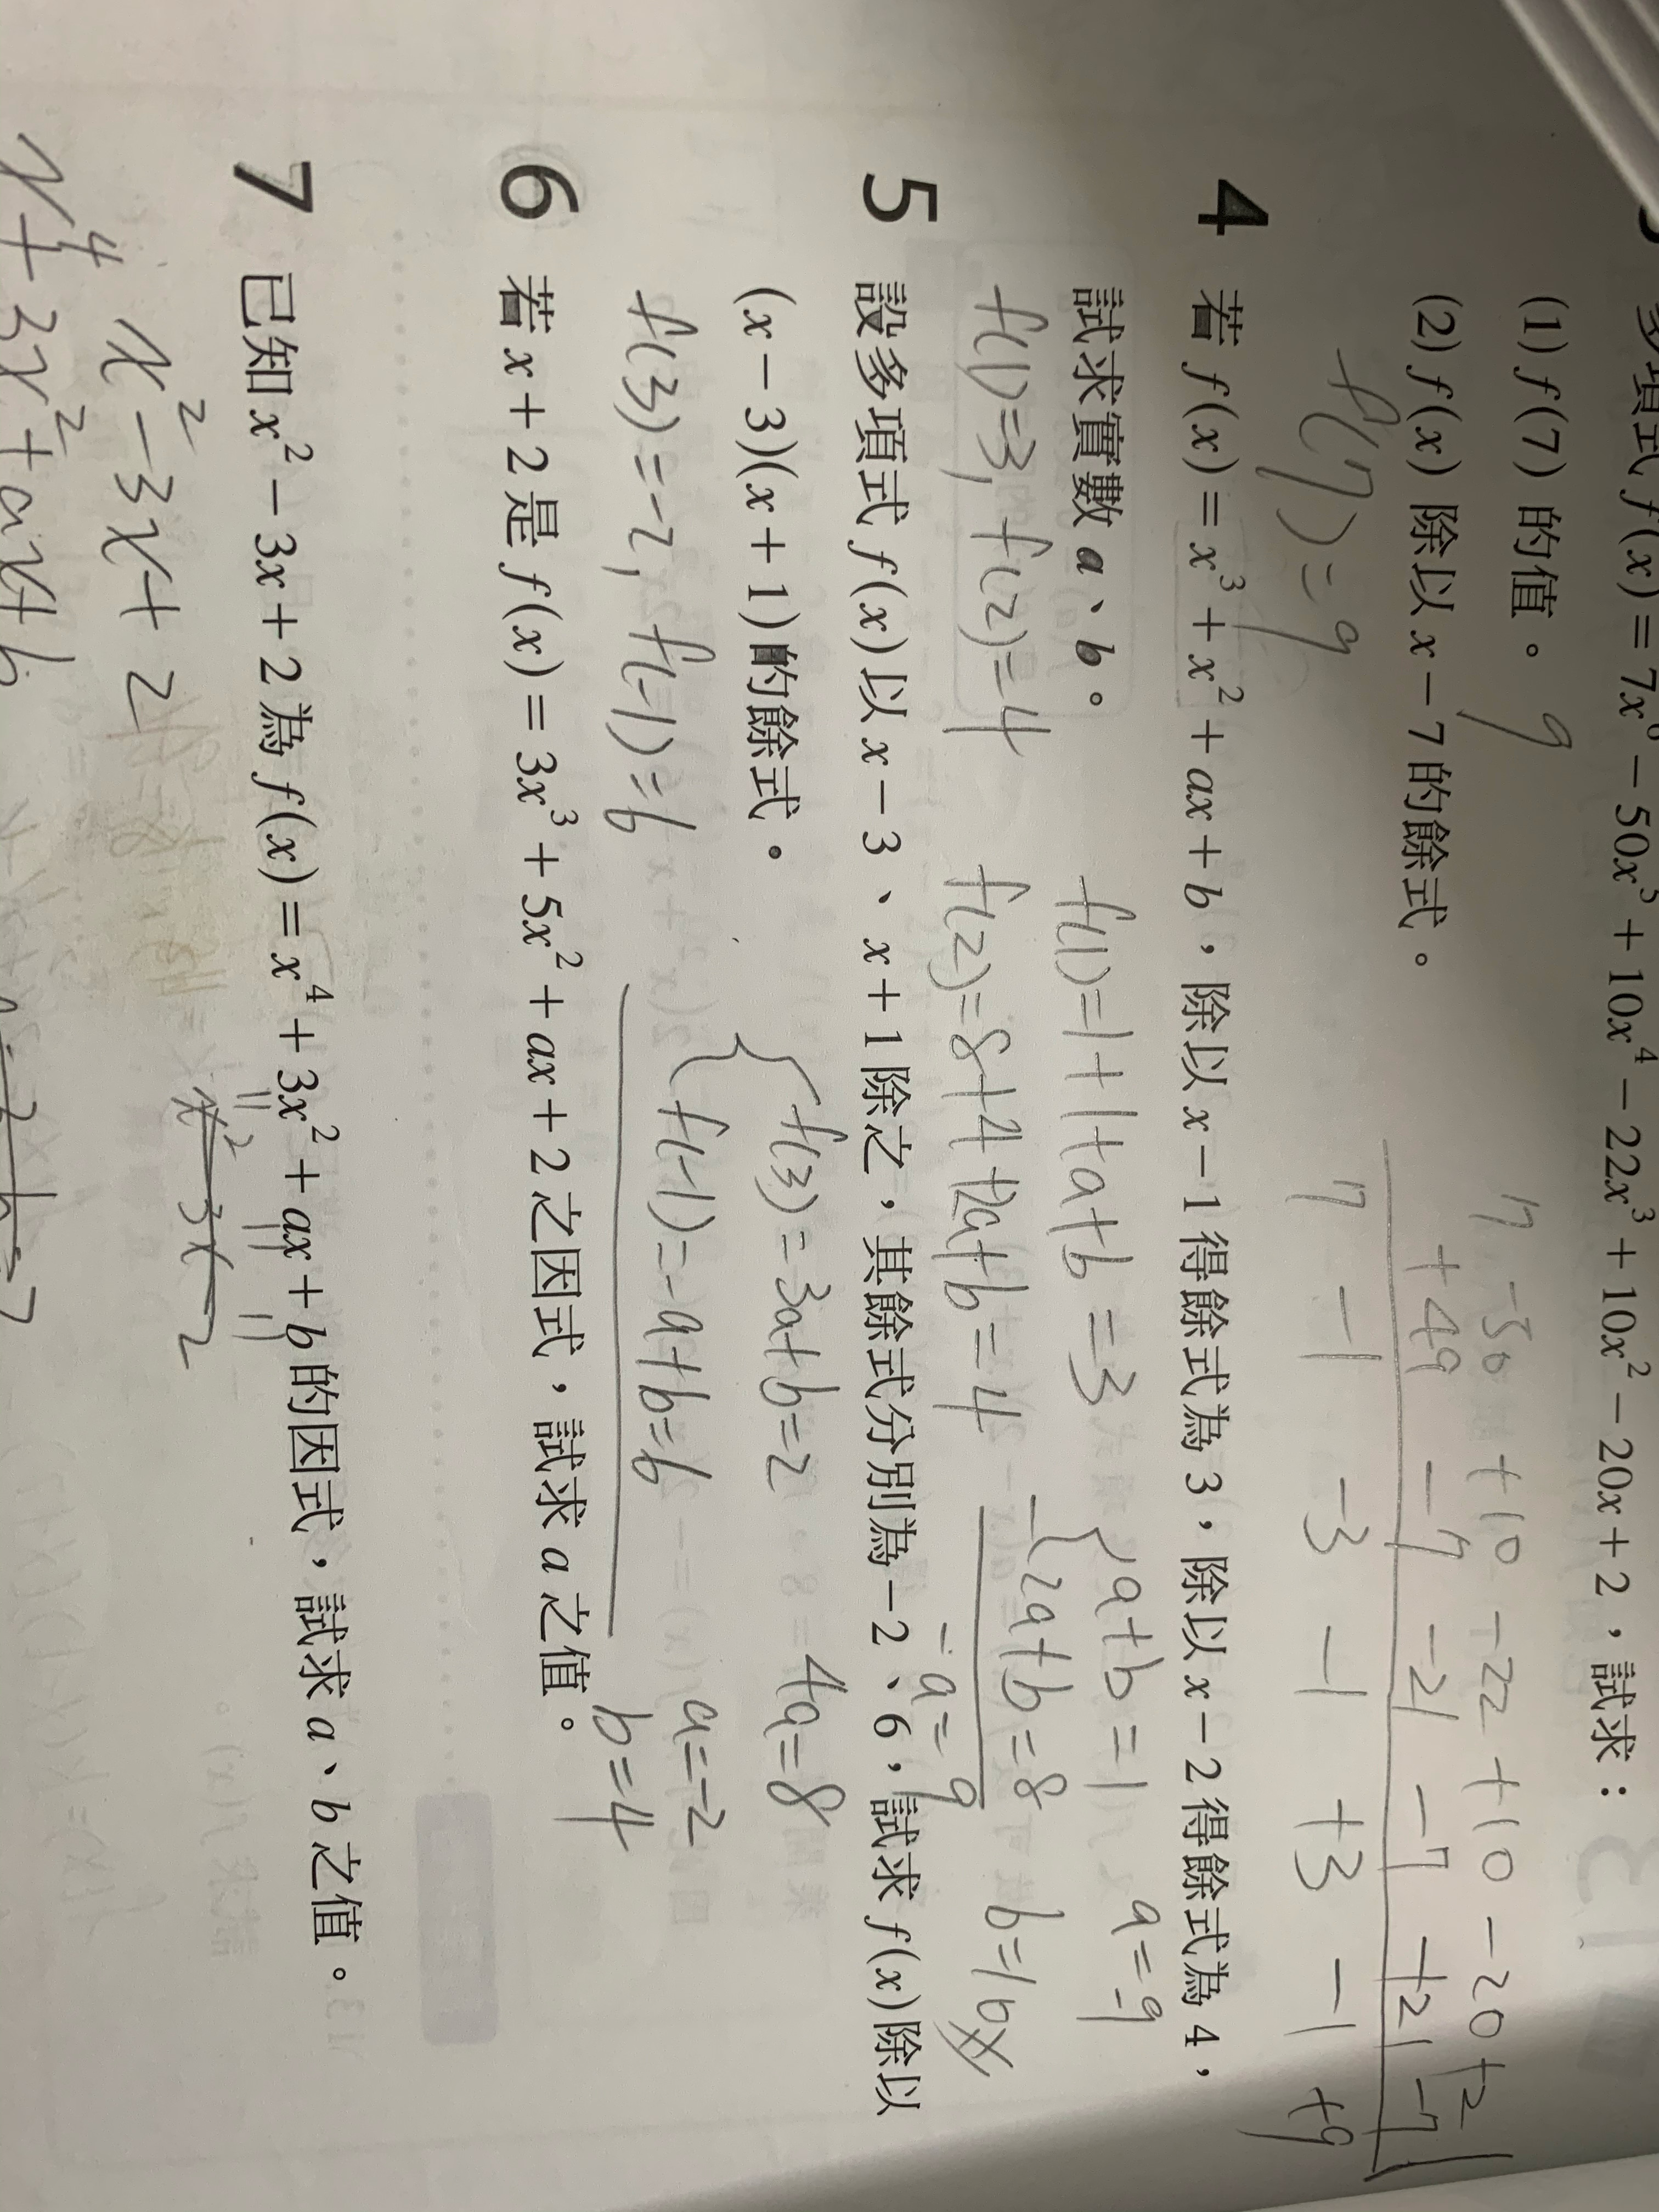 多項式 f(x) = 7x⁶ − 50x⁵ + 10x⁴ − 22x³ + 10x² − 20x + 2，試求：
(1) f(7) 的值。 9
(2) f(x) 除以 x − 7 的餘式。
f(7) = 9
7 -50 +10 -22 +10 -20 +2
+49 -7 -21 -7 +21 -7
7 -1 -3 -1 +3 -1 +9
4 若 f(x) = x³ + x² + ax + b，除以 x − 1 得餘式為 3，除以 x − 2 得餘式為 4，
試求實數 a、b。
f(1)=1+1+a+b=3
a+b=1
a=-9
f(1)=3, f(2)=4
f(2)=8+4+2a+b=4
2a+b=8
b=10
-a=9
5 設多項式 f(x) 以 x − 3、x + 1 除之，其餘式分別為 −2、6，試求 f(x) 除以
(x − 3)(x + 1) 的餘式。
f(3)=3a+b=2
4a=8
f(3)=-2, f(-1)=6
f(-1)=-a+b=6
a=-2
b=4
6 若 x + 2 是 f(x) = 3x³ + 5x² + ax + 2 之因式，試求 a 之值。
7 已知 x² − 3x + 2 為 f(x) = x⁴ + 3x² + ax + b 的因式，試求 a、b 之值。
x² 3x 2
x²-3x+2
x⁴+3x²+ax+b